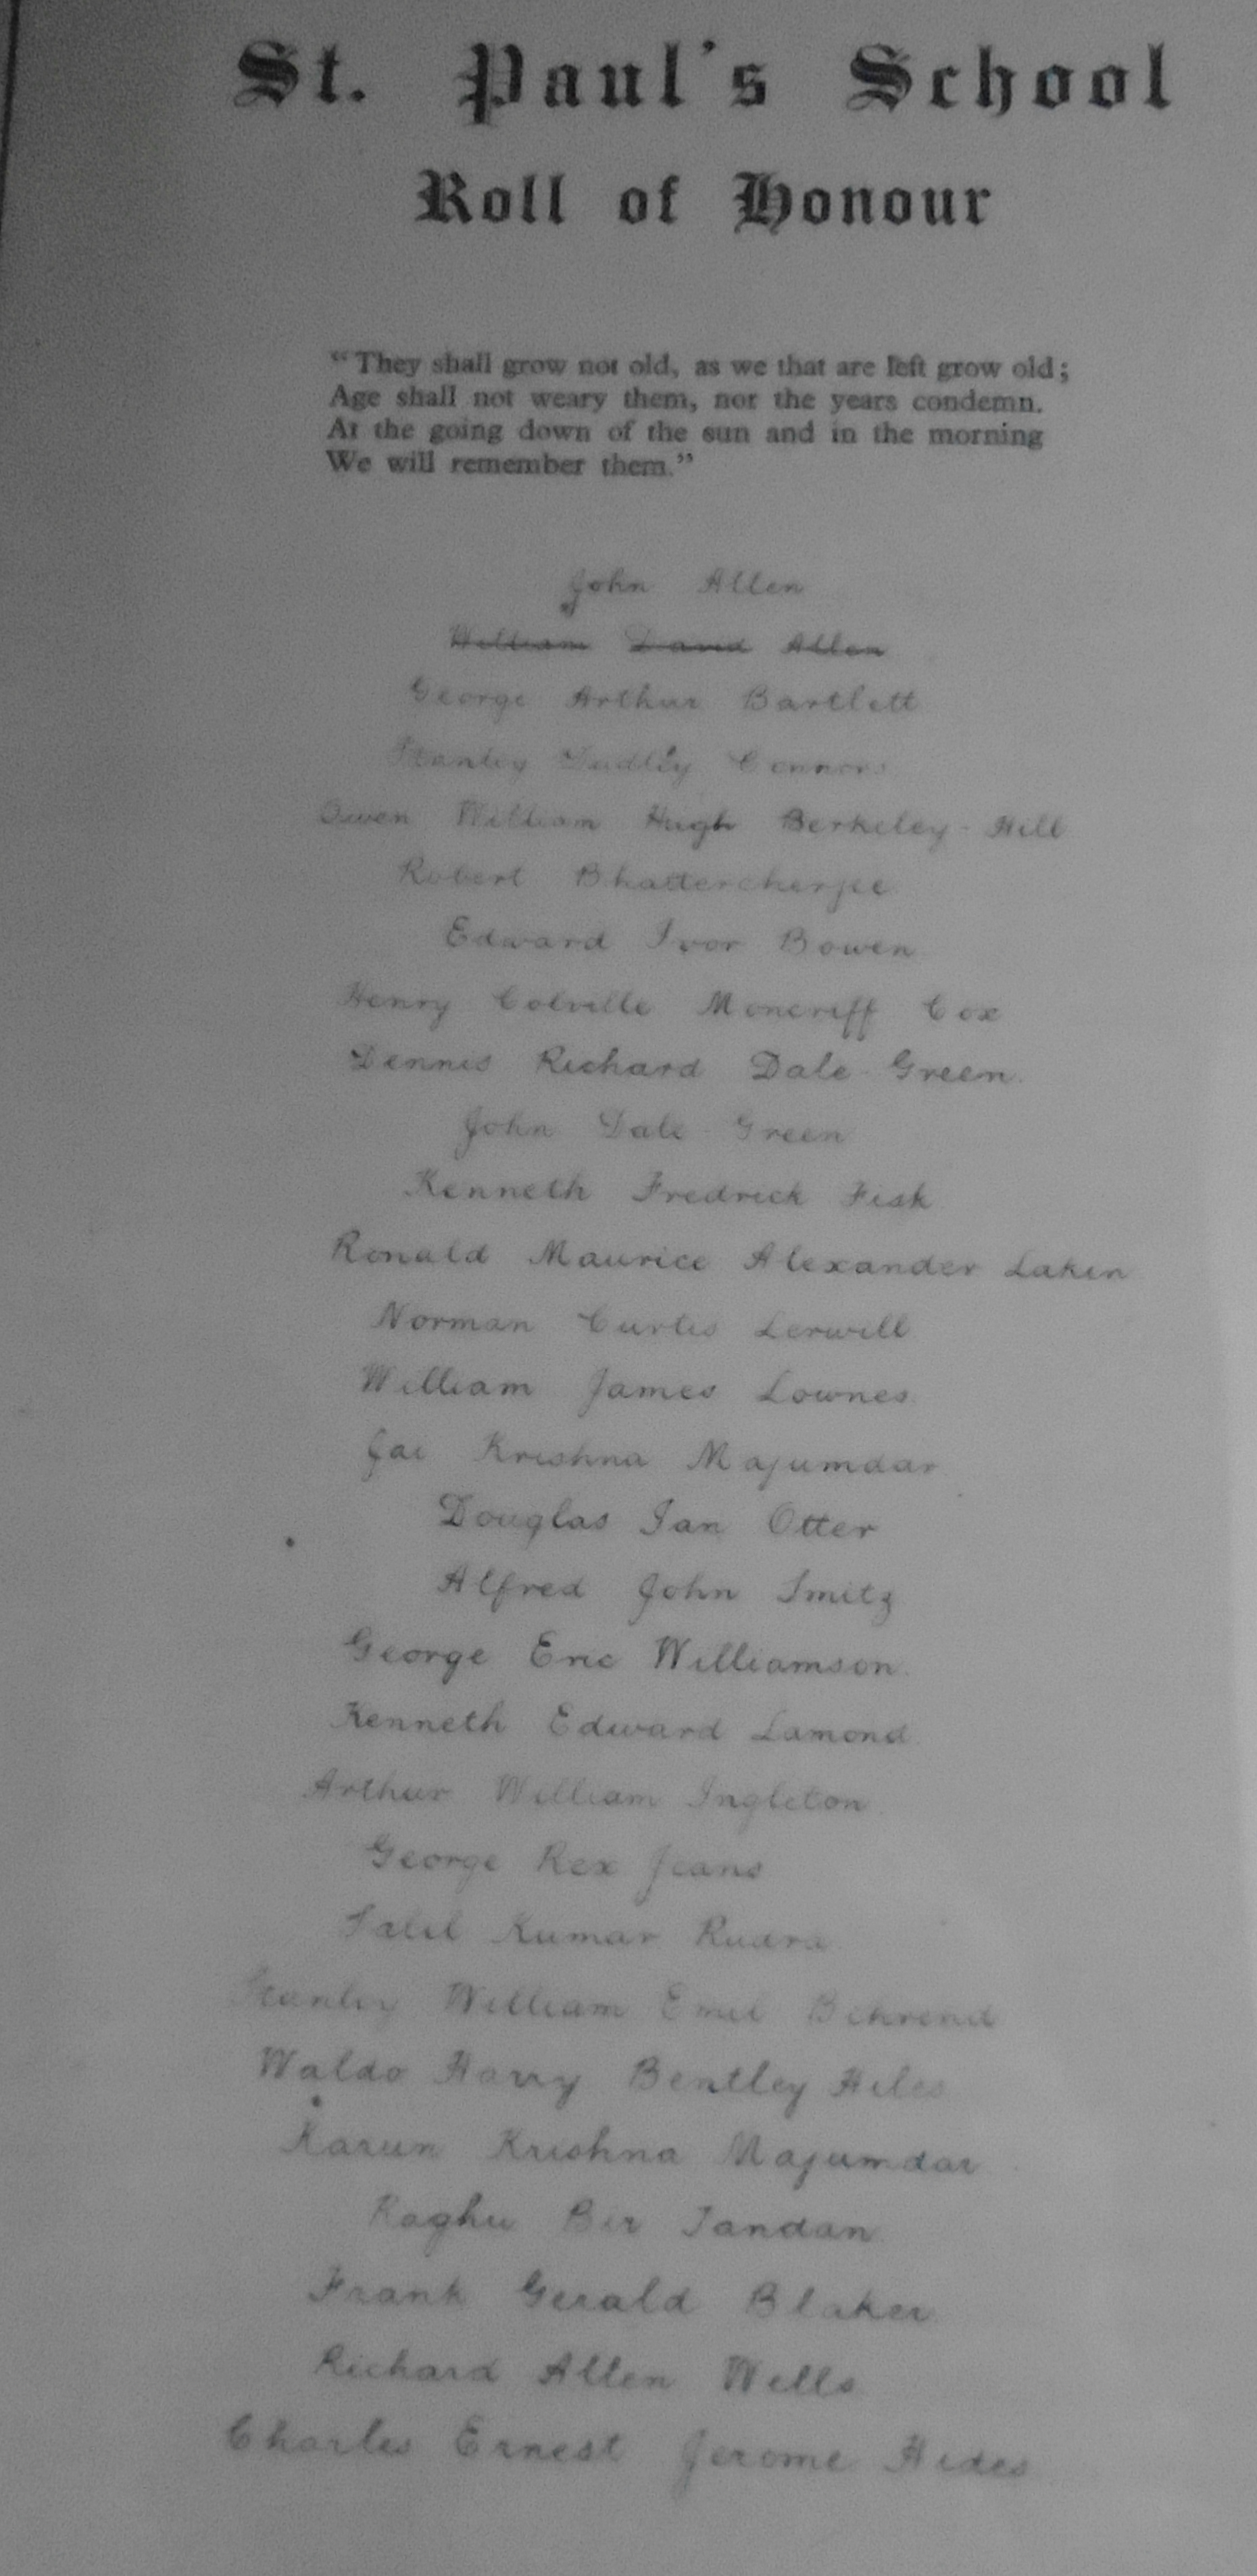 St. Paul's School
Roll of Honour
"They shall grow not old, as we that are left grow old;
Age shall not weary them, nor the years condemn.
At the going down of the sun and in the morning
We will remember them."
John Allen
William David Allen
George Arthur Bartlett
Stanley Dudley Connors
Owen William Hugh Berkeley-Hill
Robert Bhattercherjee
Edward Ivor Bowen
Henry Colville Moncriff Cox
Dennis Richard Dale-Green
John Dale-Green
Kenneth Fredrick Fisk
Ronald Maurice Alexander Lakin
Norman Curtis Lerwill
William James Lownes
Jai Krishna Majumdar
Douglas Ian Otter
Alfred John Smitz
George Eric Williamson
Kenneth Edward Lamond
Arthur William Ingleton
George Rex Jeans
Salil Kumar Rudra
Stanley William Emil Behrend
Waldo Harry Bentley Hiles
Karun Krishna Majumdar
Raghu Bir Tandan
Frank Gerald Blaker
Richard Allen Wells
Charles Ernest Jerome Hides